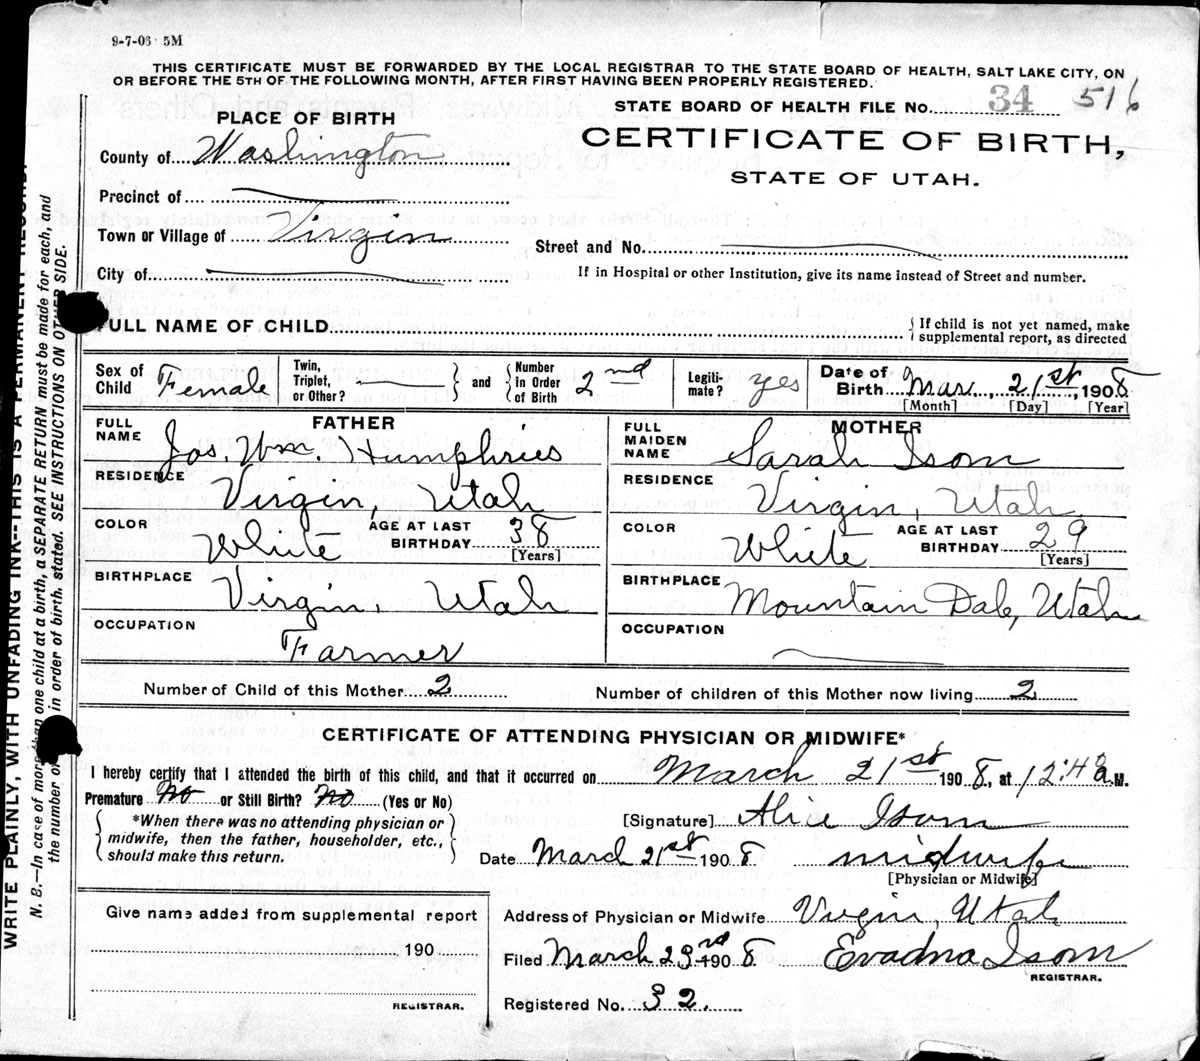 9-7-03 5M
THIS CERTIFICATE MUST BE FORWARDED BY THE LOCAL REGISTRAR TO THE STATE BOARD OF HEALTH, SALT LAKE CITY, ON
OR BEFORE THE 5TH OF THE FOLLOWING MONTH, AFTER FIRST HAVING BEEN PROPERLY REGISTERED.
STATE BOARD OF HEALTH FILE No. 34 516
PLACE OF BIRTH
CERTIFICATE OF BIRTH,
STATE OF UTAH.
County of Washington
Precinct of
Town or Village of Virgin
Street and No.
City of
If in Hospital or other Institution, give its name instead of Street and number.
FULL NAME OF CHILD
If child is not yet named, make
supplemental report, as directed
Sex of Child Female
Twin, Triplet, or Other?
and Number in Order of Birth 2nd
Legitimate? yes
Date of Birth Mar, 21st, 1908
[Month] [Day] [Year]
FATHER
FULL NAME Jos. Wm. Humphries
RESIDENCE Virgin, Utah
COLOR White AGE AT LAST BIRTHDAY 38 [Years]
BIRTHPLACE Virgin, Utah
OCCUPATION Farmer
MOTHER
FULL MAIDEN NAME Sarah Isom
RESIDENCE Virgin, Utah
COLOR White AGE AT LAST BIRTHDAY 29 [Years]
BIRTHPLACE Mountain Dale, Utah
OCCUPATION
Number of Child of this Mother 2 Number of children of this Mother now living 2
CERTIFICATE OF ATTENDING PHYSICIAN OR MIDWIFE*
I hereby certify that I attended the birth of this child, and that it occurred on March 21st 1908, at 12:40 a M.
Premature No or Still Birth? No (Yes or No)
*When there was no attending physician or
midwife, then the father, householder, etc.,
should make this return.
[Signature] Alice Isom
Date March 21st 1908 midwife
[Physician or Midwife]
Give name added from supplemental report
190
REGISTRAR.
Address of Physician or Midwife Virgin, Utah
Filed March 23rd 1908 Evadna Isom
REGISTRAR.
Registered No. 32.
WRITE PLAINLY, WITH UNFADING INK--THIS IS A PERMANENT RECORD.
N. B.—In case of more than one child at a birth, a SEPARATE RETURN must be made for each, and
the number in order of birth, stated. SEE INSTRUCTIONS ON OTHER SIDE.